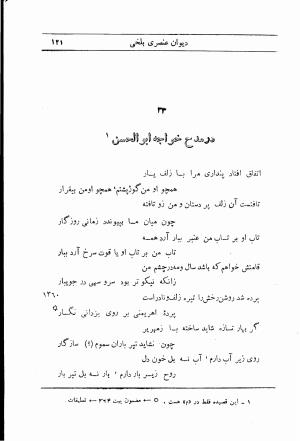 دیوان عنصری بلخی
۱۲۱
۳۳
در مدح خواجه ابوالحسن ۱
اتفاق افتاد پنداری مرا با زلف یار
همچو او من گوژپشتم همچو او من بیقرار
تافتست آن زلف پر دستان و من زو تافته
چون میان ما بپیوندد زمانی روزگار
تاب او بر تاب من عنبر ببار آرد همه
تاب من بر تاب او یاقوت سرخ آرد ببار
قامتش خواهم که باشد سال و مه در چشم من
زانکه نیکوتر بود سرو سهی در جویبار
برده شد روشن رخش را تیره زلف نادراست
۱۳۶۰
پردهٔ اهریمنی بر روی یزدانی نگار ۵
گر بهار تازه شاید ساخته با زمهریر
چون نشاید تیر باران سموم (؟) سازگار
روی زیر آب دارم آب نه بل خون دل
روح زیر بار دارم بار نه بل تیر بار
۱ - این قصیده فقط در «م» هست . ۵ ← مضمون بیت ۳۶۴ - تعلیقات .